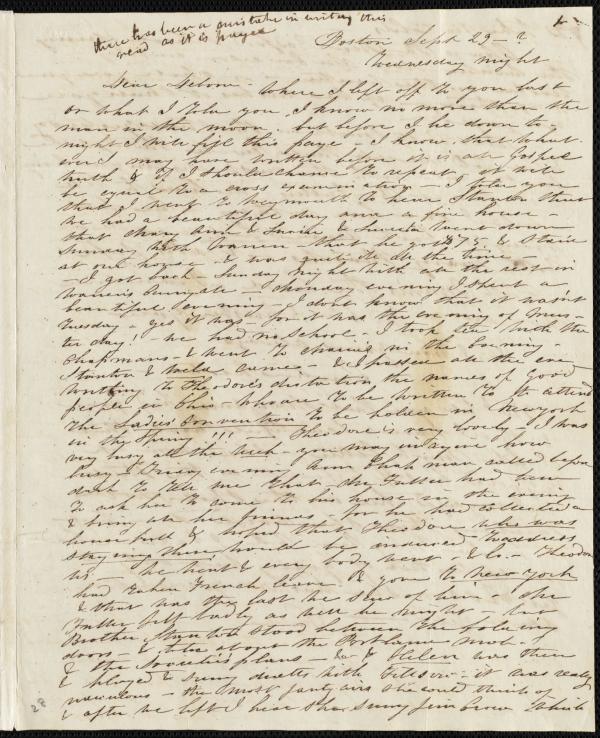 there has been a mistake in writing this
read as it is paged
Boston Sept 29 - ?
Wednesday night
Dear Debora - Where I left off to you last
or what I told you, I know no more than the
man in the moon, but before I lie down to-
night I will fill this page - I know that what-
ever I may have written before it is all Gospel
truth & if I should chance to repeat, it will
be equal to a cross examination - I told you
that I went to Weymouth to hear Stanton that
we had a beautiful day and a fine house -
that Mary Ann & & Lucretia went down
Sunday with Warren - that he got $73 & staid
at our house & was quite ill all the time -
- I got back Sunday night with all the rest in
Warren's - Monday evening I spent a
beautiful evening - I don't know that it wasn't
Tuesday - yes it was for it was the evening of Mus-
ter day! - we had no school - I took tea with the
Chapmans - & went to in the evening -
Stanton & Weld came - & I passed all the eve
writing to Theodore's dictation, the names of good
people in Ohio - who are to be written to to attend
The Ladies' Convention to be holden in New york
in the Spring!!! - Theodore is very lovely - I was
very busy all the week - you may imagine how
busy - Friday evening Ann Chapman called before
dark to tell me that Mr Fuller had been
to ask her to come to his house in the evening
& bring all her friends, for he had collected a
house full & hoped that Theodore who was
staying there would be induced to address
us - We went & every body went - & lo - Theodore
had taken French leave & gone to New York
& that was the last we saw of him - Mr
Fuller felt badly as well he might - but
Brother Stanton stood between the folding
doors - & told about the Portland mob -
& the Societies plans - & Helen was there
& played & sung duetts with - it was really
ridiculous - the most airs she could think of
& after we left I hear she sung Jim Crow which